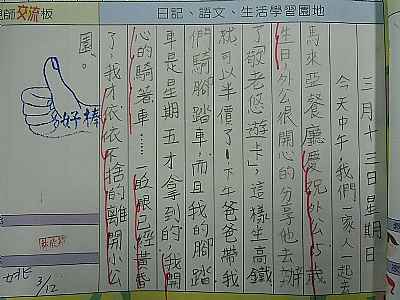 師交流板
日記、語文、生活學習園地
三月十三日星期日
今天中午,我們一家人一起去
馬來亞餐廳慶祝外公65歲
生日,外公很開心的分享他去辦
了「敬老悠遊卡」,這樣坐高鐵
就可以半價了!下午爸爸帶我
們騎腳踏車,而且我的腳踏
車是星期五才拿到的,我開
心的騎著車……一眨眼已經黃昏
了,我才依依不捨的離開小公
園。
好棒
姚 3/12